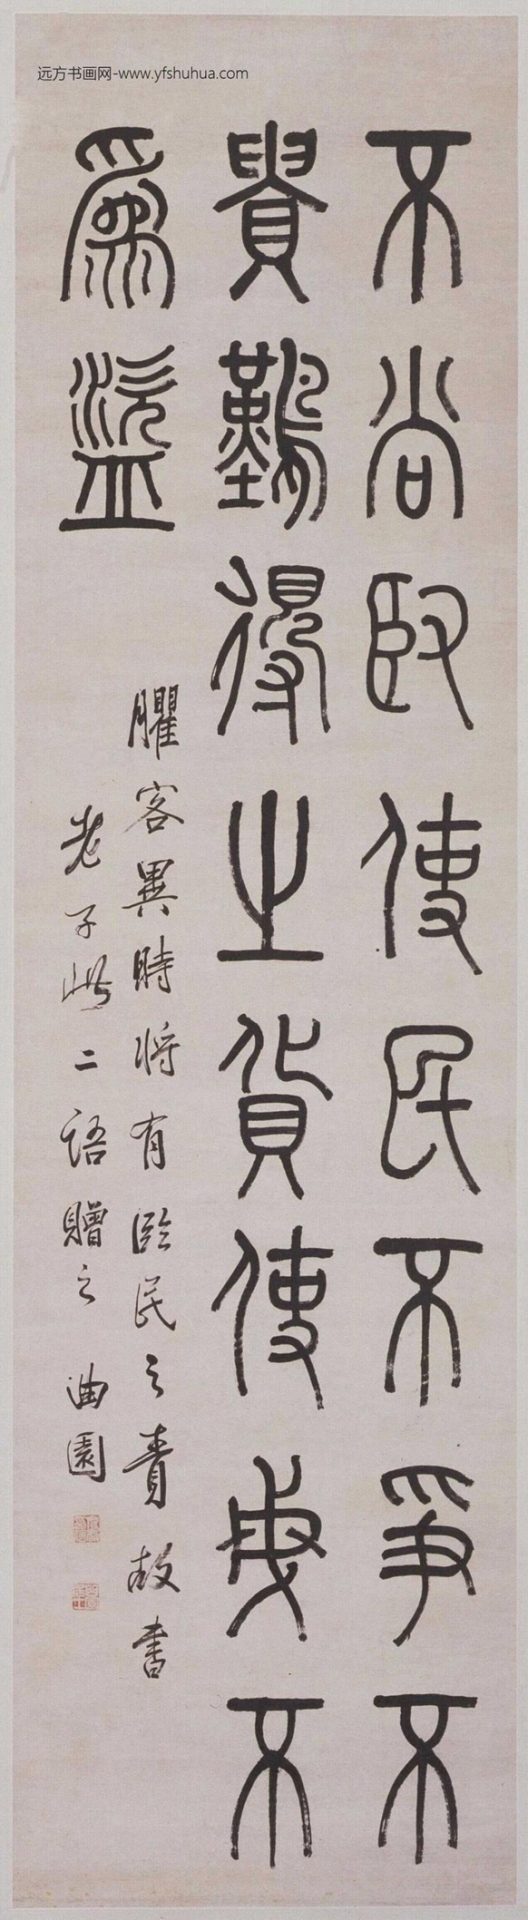 远方书画网-www.yfshuhua.com
不尚臤使民不爭不
貴難得之貨使民不
為盜
臞客異時將有臨民之責故書
老子此二語贈之 曲園